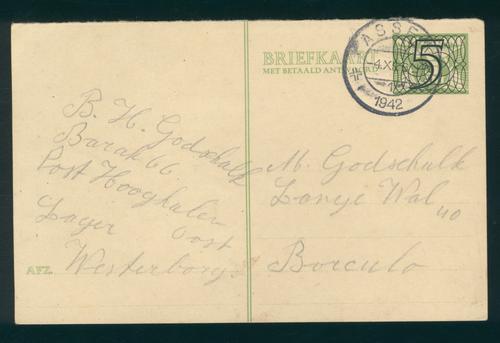 BRIEFKAART
MET BETAALD ANTWOORD
ASSEN
-4.X
1942
5
B. H. Godschalk
Barak 66
Post Hooghalen
Oost
Lager
AFZ. Westerborg
M. Godschalk
Lange Wal
40
Borculo